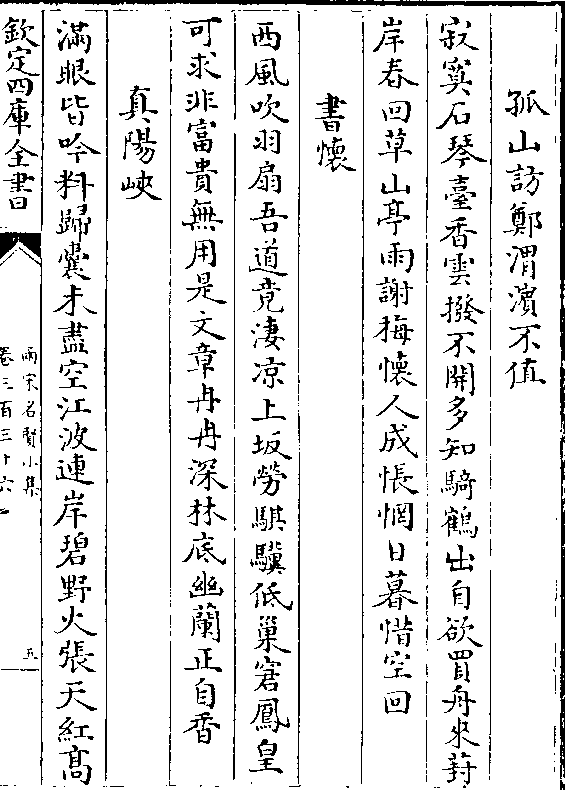 孤山訪鄭渭濱不值
寂寞石琴臺香雲撥不開多知騎鶴出自欲買舟來葑
岸春回草山亭雨謝梅懷人成悵惘日暮惜空回
書懷
西風吹羽扇吾道竟淒凉上坂勞騏驥低巢窘鳳皇
可求非富貴無用是文章冉冉深林底幽蘭正自香
真陽峽
滿眼皆吟料歸囊未盡空江波連岸碧野火張天紅高
欽定四庫全書
兩宋名賢小集
卷三百三十六
五